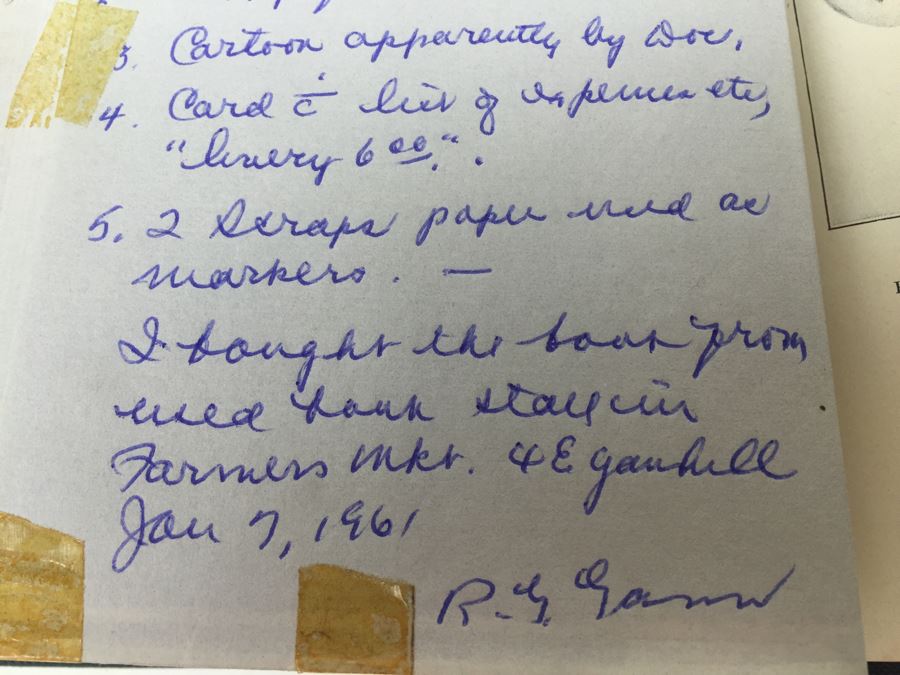 3. Cartoon apparently by Doc.
4. Card c̄ list of expenses etc,
"livery 6 00."
5. 2 Scraps paper used as
markers. —
I bought the book from
used book stall in
Farmers Mkt. 4 E
Jan 7, 1961
R. G.